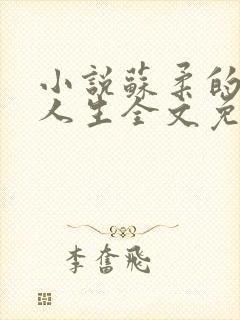 小說蘇柔的
人生全文免
李奮飛